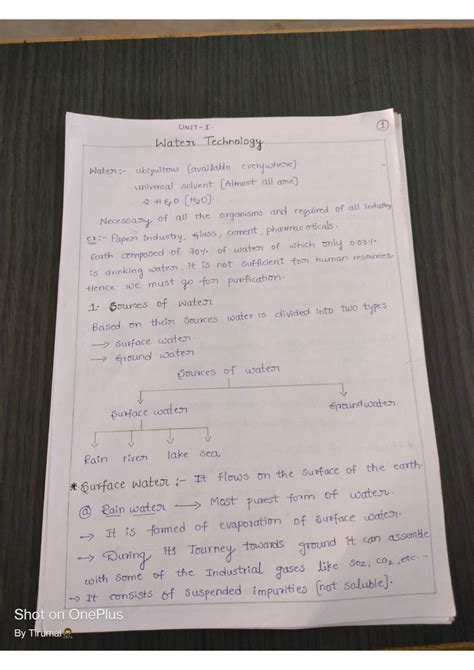 UNIT-I.
1
Water Technology
Water:- ubiquitous [available everywhere].
universal solvent [Almost all are]
[H2O].
Necessary of all the organisms and required of all Industry
ex:- Paper industry, glass, cement, pharmaceuticals.
Earth composed of 70% of water of which only 0.03%
is drinking water, it is not sufficient for human resources.
Hence we must go for purification.
1. Sources of Water
Based on their sources water is divided into two types.
→ Surface water
→ Ground water
Sources of water
Surface water Groundwater.
Rain river lake sea
* Surface Water :- It flows on the surface of the earth
@ Rain water → Most purest form of water.
→ It is formed of evaporation of surface water.
→ During its Journey towards ground it can assemble
with some of the Industrial gases like SO2, CO2, etc--
→ It consists of suspended impurities [not soluble].
Shot on OnePlus
By Tirumal